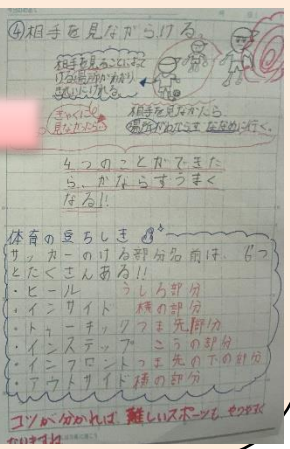 ④相手を見ながらける。
相手を見ることによって
ける場所がわかり
きれいにける。
ぎゃくに
見なかったら
相手を見ないなら
場所がわからずななめに行く。
4つのことができた
ら、かならずうまく
なる!!
体育の豆ちしき
サッカーのける部分名前は、6つ
とたくさんある!!
・ヒール うしろ部分
・インサイド 横の部分
・トゥーキック つま先部分
・インステップ こうの部分
・インフロント つま先の下の部分
・アウトサイド 横の部分
コツが分かれば、難しいスポーツも
なりますね